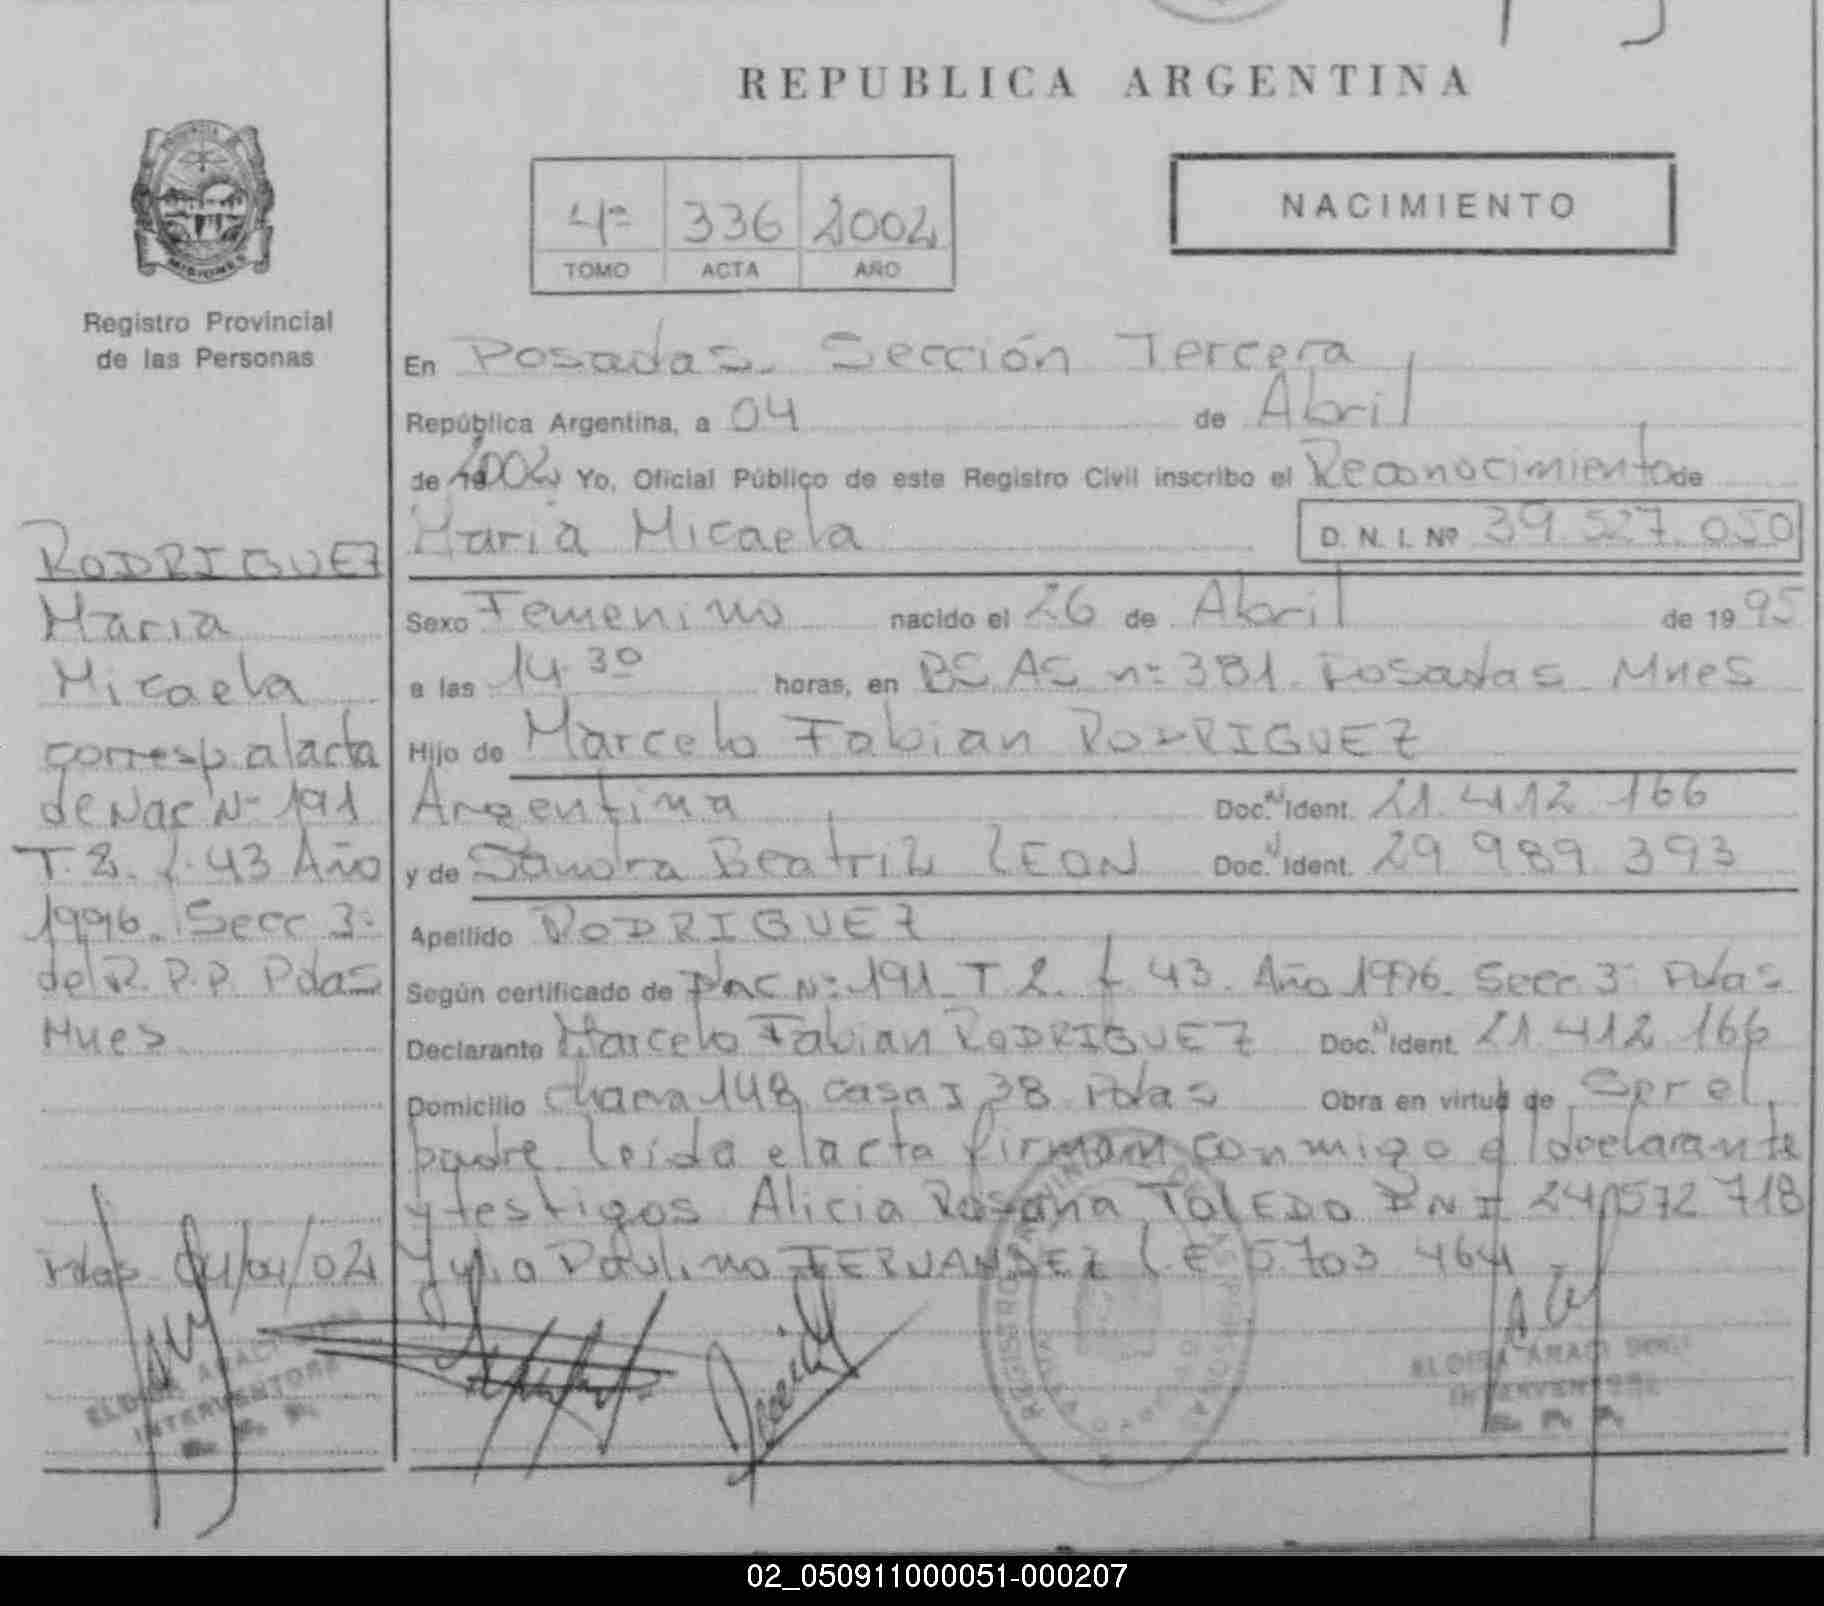 REPUBLICA ARGENTINA
NACIMIENTO
4º 336 2002
TOMO ACTA AÑO
MISIONES
Registro Provincial
de las Personas
RODRIGUEZ
Maria
Micaela
corresp. al acta
de Nac Nº 191
T. 2. f. 43 Año
1996. Secc 3º
del R. P. P. Pdas
Mnes
Pdas 04/04/02
En Posadas. Sección Tercera
República Argentina, a 04 de Abril
de 2002 Yo, Oficial Público de este Registro Civil inscribo el Reconocimiento de
Maria Micaela D. N. I. Nº 39.527.050
Sexo Femenino nacido el 26 de Abril de 1995
a las 14.30 horas, en BS AS nº 381 Posadas Mnes
Hijo de Marcelo Fabian RODRIGUEZ
Argentina Doc. Ident. 21.412.166
y de Sandra Beatriz LEON Doc. Ident. 29.989.393
Apellido RODRIGUEZ
Según certificado de Nac Nº 191 T 2. f 43. Año 1996. Secc 3º Pdas
Declarante Marcelo Fabian RODRIGUEZ Doc. Ident. 21.412.166
Domicilio chacra 148 casa 38 Pdas Obra en virtud de Ser el
padre leída el acta firman conmigo el declarante
y testigos Alicia Rosana TOLEDO DNI 24.572.718
Julio Paulino FERNANDEZ L.E 5.703.464
INTERVENTORA
R. P. P.
ELOISA ARACI
INTERVENTORA
R. P. P.
02_050911000051-000207